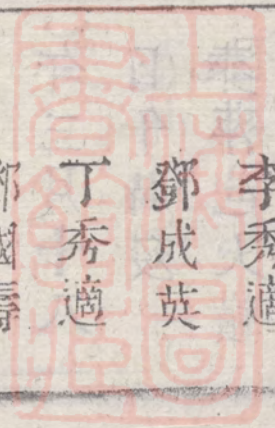 李秀適
鄧成英
丁秀適
國壽